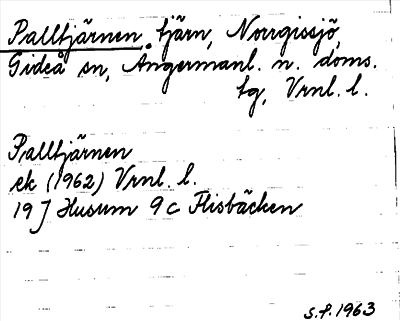 Palltjärnen, tjärn, Norrgissjö,
Gideå sn, Ångermanl. n. doms.
tg, Vrnl. l.
Palltjärnen
ek (1962) Vrnl. l.
19 J Husum 9 c Flisbäcken
S.F. 1963